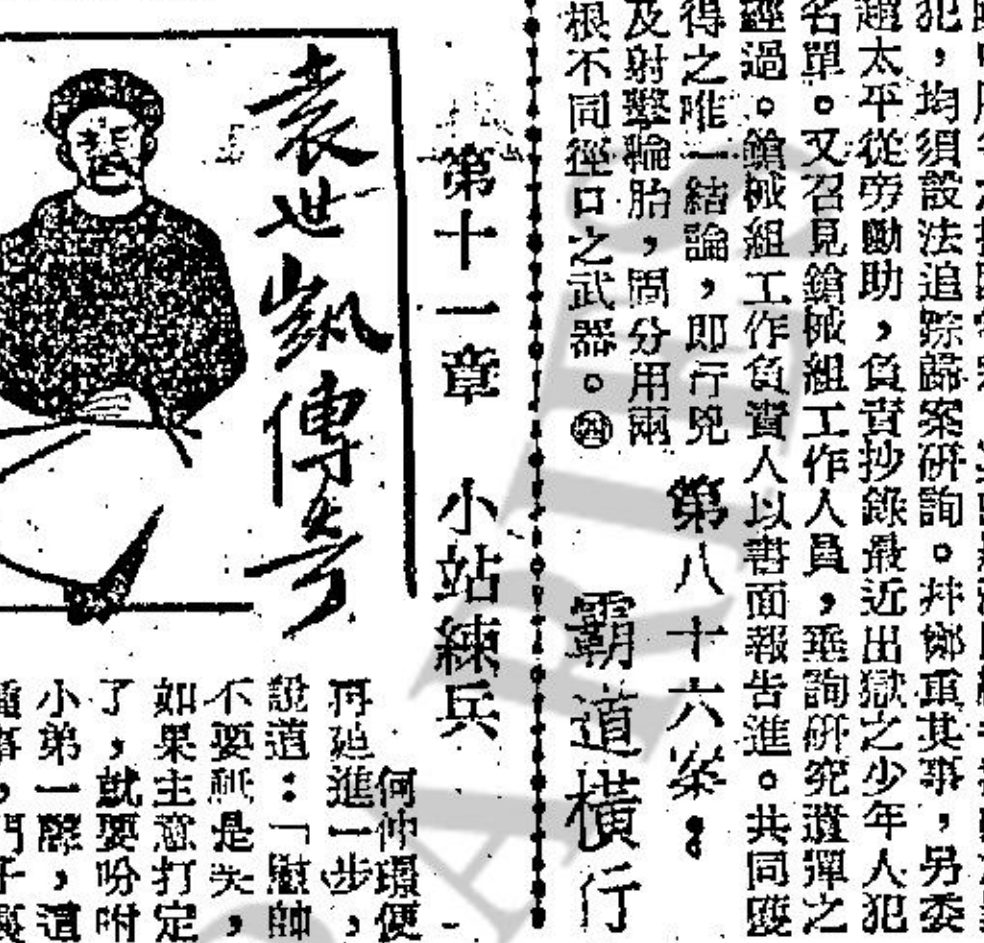 犯，均須設法追踪歸案研詢。并鄭重其事，另委
趙太平從旁勷助，負責抄錄最近出獄之少年人犯
名單。又召見鎗械組工作人員，垂詢研究遺彈之
經過。鎗械組工作負責人以書面報告進。共同獲
得之唯一結論，即行兇
及射擊輪胎，間分用兩
根不同徑口之武器。㊃
第八十六案：
霸道橫行
第十一章　小站練兵
袁世凱傳奇
何仲環便
再進一步，
說道：「慰帥
不要祇是失，
如果主意打定
了，就要吩咐
小弟一聲，這